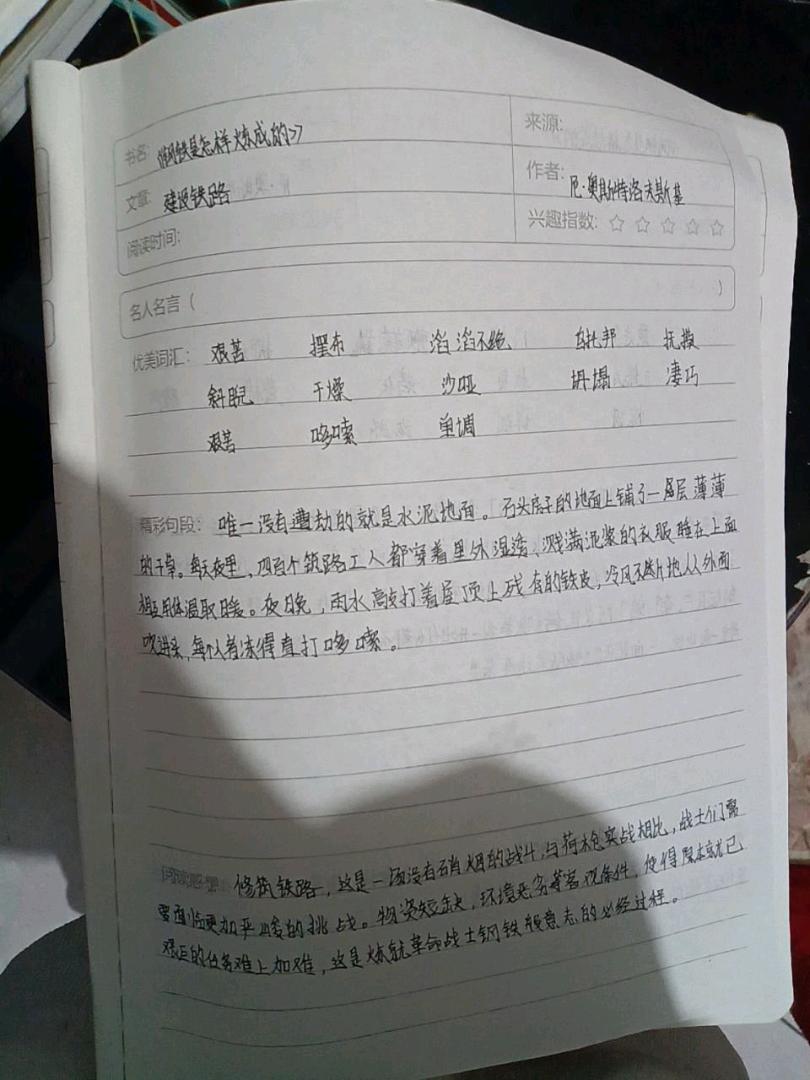 书名: 《钢铁是怎样炼成的>>
来源:
文章: 建设铁路
作者: 尼·奥斯特洛夫斯基
阅读时间:
兴趣指数: ☆ ☆ ☆ ☆ ☆
名人名言 ( )
优美词汇: 艰苦 摆布 滔滔不绝 乌托邦 抚摸
斜睨 干燥 沙哑 坍塌 凄巧
艰苦 哆嗦 单调
精彩句段: 唯一没有遭劫的就是水泥地面。石头房子的地面上铺了一层薄薄
的干草。每天夜里,四百个筑路工人都穿着里外湿透、溅满泥浆的衣服睡在上面
相互用体温取暖。夜晚,雨水敲打着屋顶上残存的铁皮,冷风不断地从外面
吹进来,每个人都冻得直打哆嗦。
阅读感想: 修筑铁路,这是一场没有硝烟的战斗,与荷枪实战相比,战士们需
要面临更加严峻的挑战。物资短缺,环境恶劣等客观条件,使得原本就已
艰巨的任务难上加难,这是炼就革命战士钢铁般意志的必经过程。